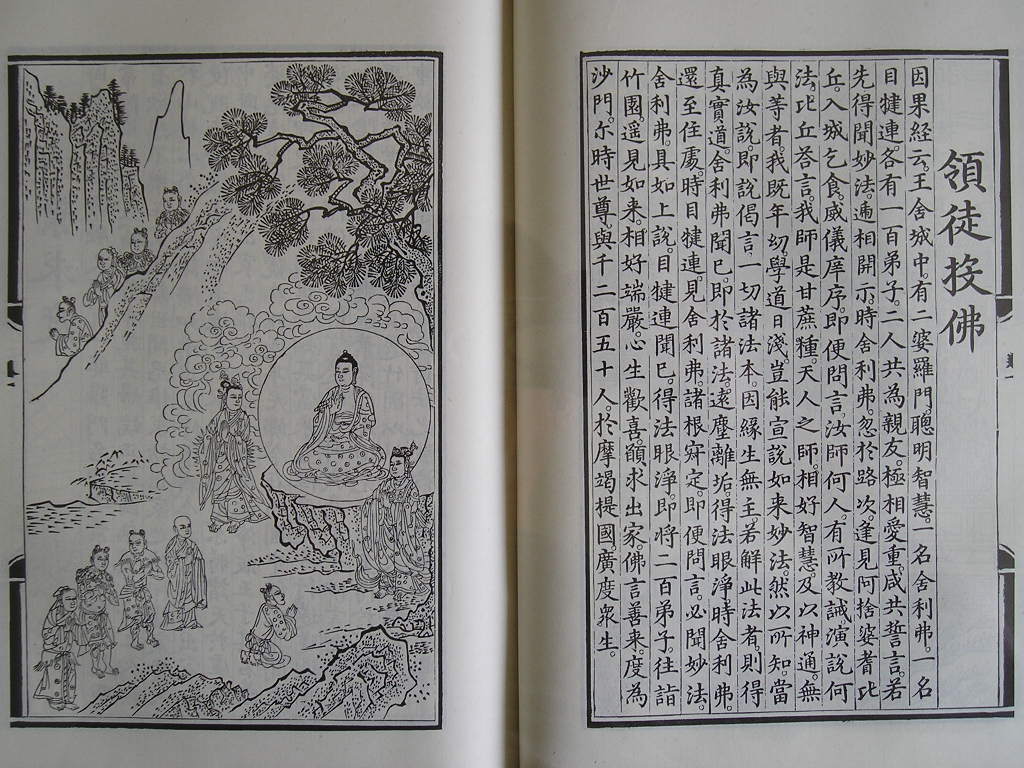 領徒投佛
因果經云。王舍城中。有二婆羅門。聰明智慧。一名舍利弗。一名
目犍連。各有一百弟子。二人共為親友。極相愛重。咸共誓言。若
先得聞妙法。遞相開示。時舍利弗。忽於路次。逢見阿捨婆耆比
丘。入城乞食。威儀庠序。即便問言。汝師何人。有所教誡。演說何
法。比丘荅言。我師是甘蔗種。天人之師。相好智慧。及以神通。無
與等者。我既年幼。學道日淺。豈能宣說如来妙法。然以所知。當
為汝說。即說偈言。一切諸法本。因緣生無主。若解此法者。則得
真實道。舍利弗聞已。即於諸法。遠塵離垢。得法眼淨。時舍利弗。
還至住處。時目犍連。見舍利弗。諸根寂定。即便問言。必聞妙法。
舍利弗。具如上說。目犍連聞已。得法眼淨。即將二百弟子。往詣
竹園。遥見如来。相好端嚴。心生歡喜。願求出家。佛言善来。度為
沙門。尒時世尊。與千二百五十人。於摩竭提國。廣度眾生。